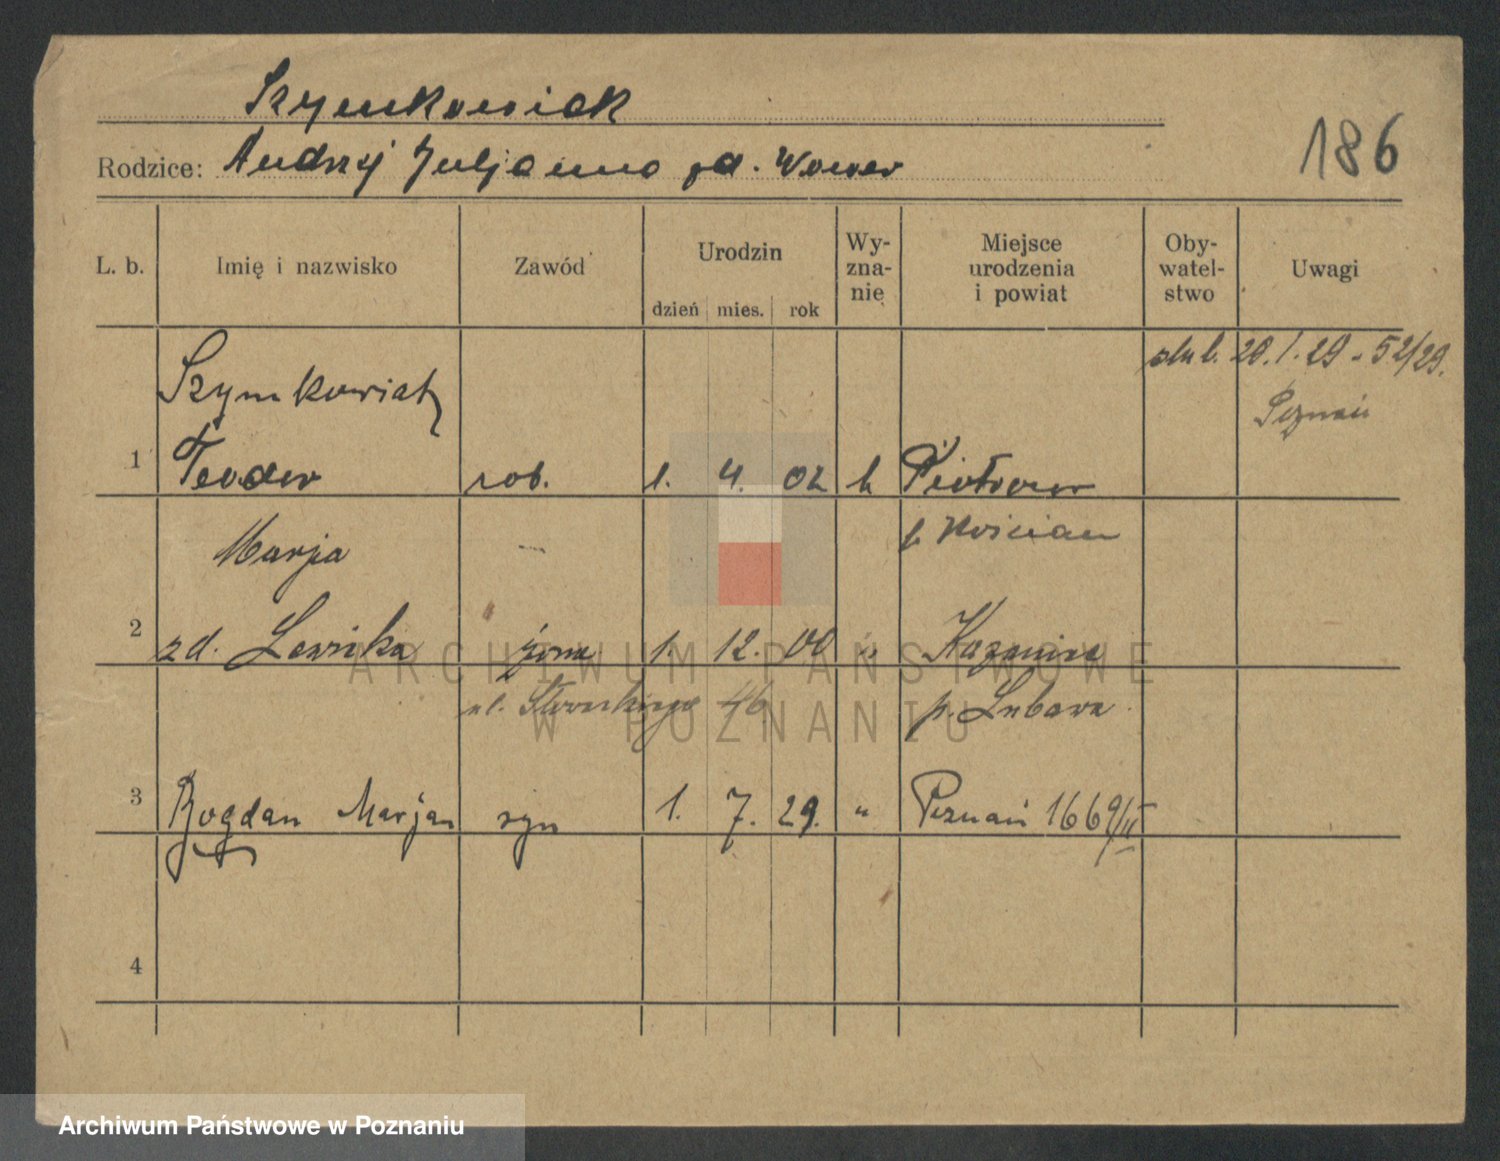 Szymkowiak
186
Rodzice: Andrzej Juljanna zd.
L. b. Imię i nazwisko Zawód Urodzin dzień mies. rok Wy-zna-nie Miejsce urodzenia i powiat Oby-watel-stwo Uwagi
ślub. 20.1.29 - 52/29.
Szymkowiak
Poznań
1 Teodor rob. 1. 4. 02 k Piotrowo
p. Kościan
Marja
2 zd. żona 1. 12. 00 " Kazanice
ul. Słowackiego 46 p. Lubawa
3 Bogdan Marjan syn 1. 7. 29. " Poznań 1669/II
4
ARCHIWUM PAŃSTWOWE
W POZNANIU
Archiwum Państwowe w Poznaniu